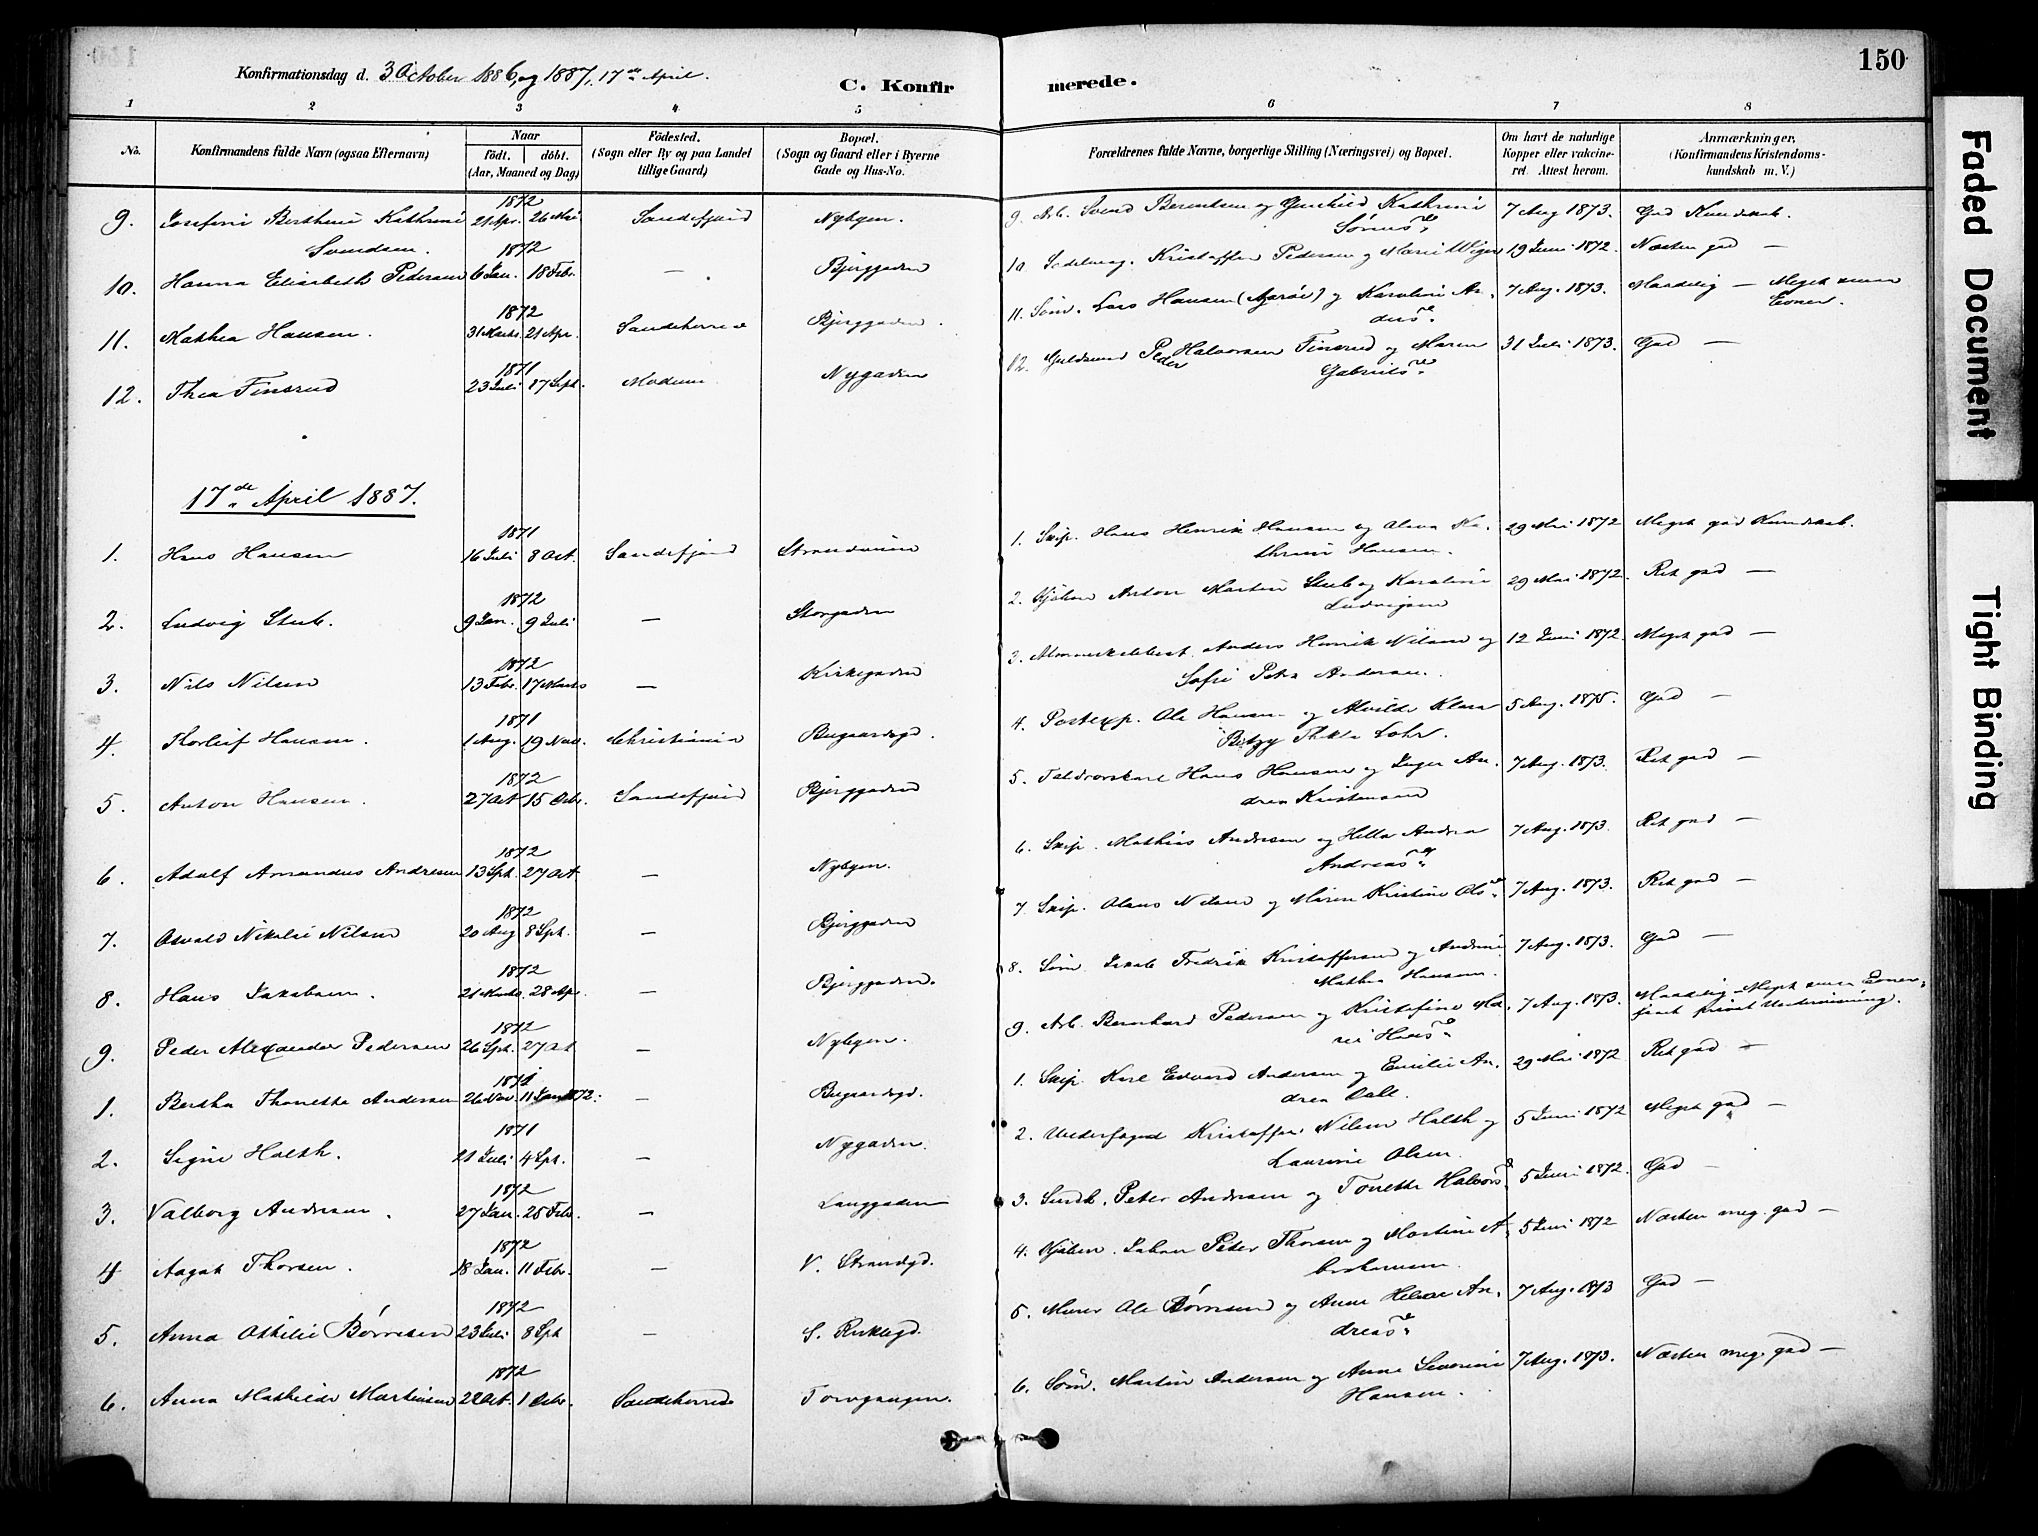 150
Konfirmationsdag d. 3 October 1886, og 1887, 17de April.
C. Konfirmerede.
1 2 3 4 5 6 7 8
No. | Konfirmandens fulde Navn (ogsaa Efternavn) | Naar født. | døbt. (Aar, Maaned og Dag) | Fødested. (Sogn eller By og paa Landet tillige Gaard) | Bopæl. (Sogn og Gaard eller i Byerne Gade og Hus-No. | Forældrenes fulde Navne, borgerlige Stilling (Næringsvei) og Bopæl. | Om havt de naturlige Kopper eller vakcineret. Attest herom. | Anmærkninger, (Konfirmandens Kristendomskundskab m. V.)
9. Josefine Berthine Kathrine Svendsen. 1872 21 Apr. 26 Mai Sandefjord Nybyen. 9. Arb. Svend Berentsen og Gunhild Kathrine Sørens. 7 Aug 1873. God Kundskab.
10. Hanna Elisabeth Pedersen 1872 6 Jan. 18 Febr. — Bjerggaden 10. Kristoffer Pedersen og Marie Wiger 19 Juni 1872. Næsten god —
11. Mathea Hansen. 1872 31 Marts. 21 Apr. Sandeherred Bjerggaden. 11. Søm. Lars Hansen og Karoline An- ders. 7 Aug. 1873. Maadelig — Meget smaa Evner.
12. Thea Finsrud 1871 23 Juli 17 Sept. Modum Nygaden 12. Guldsmed Peder Halvorsen Finsrud og Maren Gabriels. 31 Juli 1873. God —
17de April 1887.
1. Hans Hansen 1871 16 Juli 8 Oct. Sandefjord Strandveien 1. Skip. Hans Henrik Hansen og Ka- thrine Hansen. 29 Mai 1872 Meget god Kundskab.
2. Ludvig Stub. 1872 9 Jan. 9 Juli — Storgaden 2. Kjøbm Anton Martin Stub og Karoline Ludvigsen 29 Mai 1872. Ret god —
3. Nils Nilsen 1872 13 Febr. 17 Marts — Kirkegaden 3. Anders Henrik Nilsen og Sofie Petra Andersen. 12 Juni 1872. Meget god —
4. Thorleif Hansen. 1871 1 Aug. 19 Nov. Christiania Bugaardsgd. 4. Postexp. Ole Hansen og Alvilde Klara Betzy Thekla Lohr. 5 Aug. 1875. God —
5. Anton Hansen. 1872 27 Oct 15 Sandefjord Bjerggaden 5. Hans Hansen og Inger An- drea Kristensen 7 Aug. 1873. Ret god —
6. Adolf Amandus Andresen 1872 13 Spt. 27 Oct — Nybyen. 6. Skip. Mathias Andresen og Hella Andrea Andreas. 7 Aug. 1873. Ret god —
7. Osvald Nikolai Nilsen 1872 20 Aug 8 Spt. — Bjerggaden 7. Skip. Olaus Nilsen og Maren Kristine Ols. 7 Aug. 1873. Ret god —
8. Hans Jakobsen. 1872 21 Marts 28 Apr. — Bjerggaden. 8. Søm Jakob Fredrik Kristoffersen og Andrine Mathea Hansen. 7 Aug. 1873. God —
9. Peder Alexander Pedersen 1872 26 Spt. 27 Oct — Nybyen. 9. Arb. Bernhard Pedersen og Kristofine Ma- rie Hans. 7 Aug. 1873. Maadelig — Meget smaa Evner, privat Undervisning.
1. Bertha Thonette Andersen 1871 26 Nov 11 Jan 1872. — Bugaardsgd. 1. Skip. Karl Edvard Andersen og Emilie An- drea Dall. 29 Mai 1872 Ret god —
2. Signe Holth. 1871 21 Juli 4 Spt. — Nygaden. 2. Underfoged Kristoffer Nilsen Holth og Laurine Olsen. 5 Juni 1872 Meget god —
3. Valborg Andresen. 1872 27 Jan. 25 Febr. — Langgaden 3. Snedk. Peter Andresen og Tonette Halvors. 5 Juni 1872. God —
4 Aagot Thorsen. 1872 18 Jan. 11 Febr. — V. Strandgd. 4. Kjøbm. Johan Peter Thorsen og Martine A- brahamsen. 5 Juni 1872 Næsten meg. god —
5. Anna Othilie Børresen 1872 23 Juli 8 Spt — S. Kirkegd. 5. Murer Ole Børresen og Anne Helene An- dreas. 7 Aug. 1873 God —
6. Anna Mathilde Martinsen 1872 22 Oct. 1 Sandeherred Torvgangen. 6. Søm. Martin Andersen og Anne Severine Hansen. 7 Aug. 1873. Næsten meg. god —
Faded Document
Tight Binding